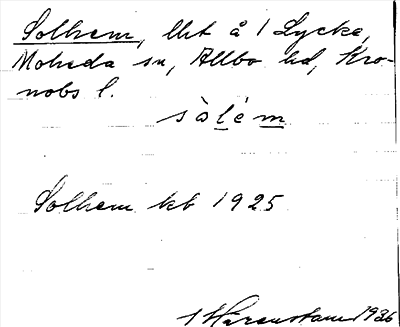 Solhem, lht å 1 Lycke,
Moheda sn, Allbo hd, Kro-
nobs l.
sòlém
Solhem kb 1925
Härenstam 1936